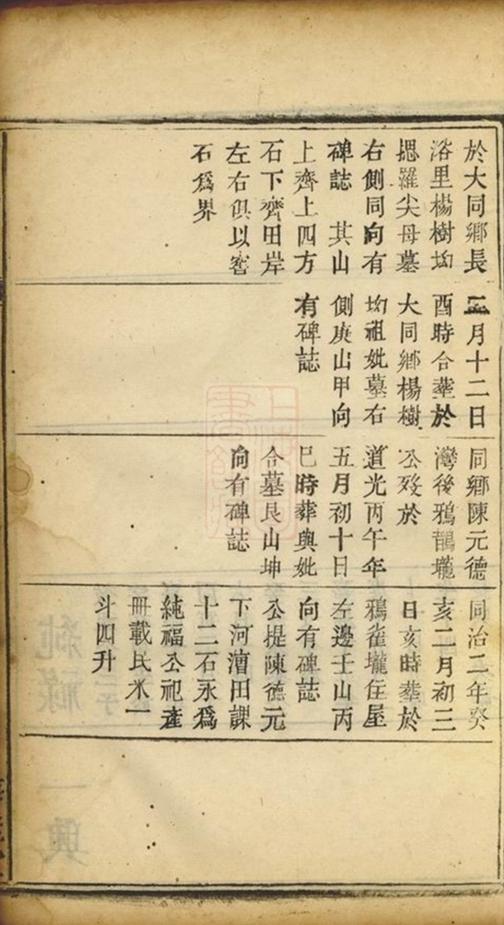 於大同鄉長
洛里楊樹坳
摁羅尖母墓
右側同向有
碑誌　其山
上齊上四方
石下齊田岸
左右俱以窖
石爲界
月十二日
酉時合葬於
大同鄉楊樹
坳祖妣墓右
側庚山甲向
有碑誌
同鄉陳元德
灣後鴉鵲壠
公歿於
道光丙午年
五月初十日
巳時葬與妣
合墓艮山坤
向有碑誌
同治二年癸
亥二月初三
日亥時葬於
鴉雀壠住屋
左邊壬山丙
向有碑誌
公提陳德元
下河漕田課
十二石永爲
純福公祀產
冊載民米一
斗四升